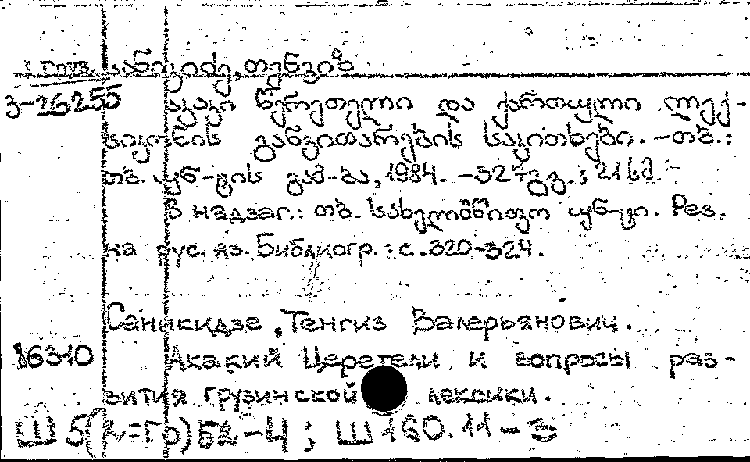 სანიკიძე, თენგიზ
3-26255 აკაკი წერეთელი და ქართული ლექ-
სიკონის განვითარების საკითხები. – თბ.:
თბ. უნ-ტის გამ-ბა, 1984. – 327 გვ.; 21 სმ. –
В надзаг.: თბ. სახელმწიფო უნ-ტი. Рез.
на рус. яз. Библиогр.: с. 320-324.
Саникидзе, Тенгиз Валерьянович.
Акакий Церетели и вопросы раз-
вития грузинской лексики.
Ш5(2=Гр)52-4; Ш160.11-3